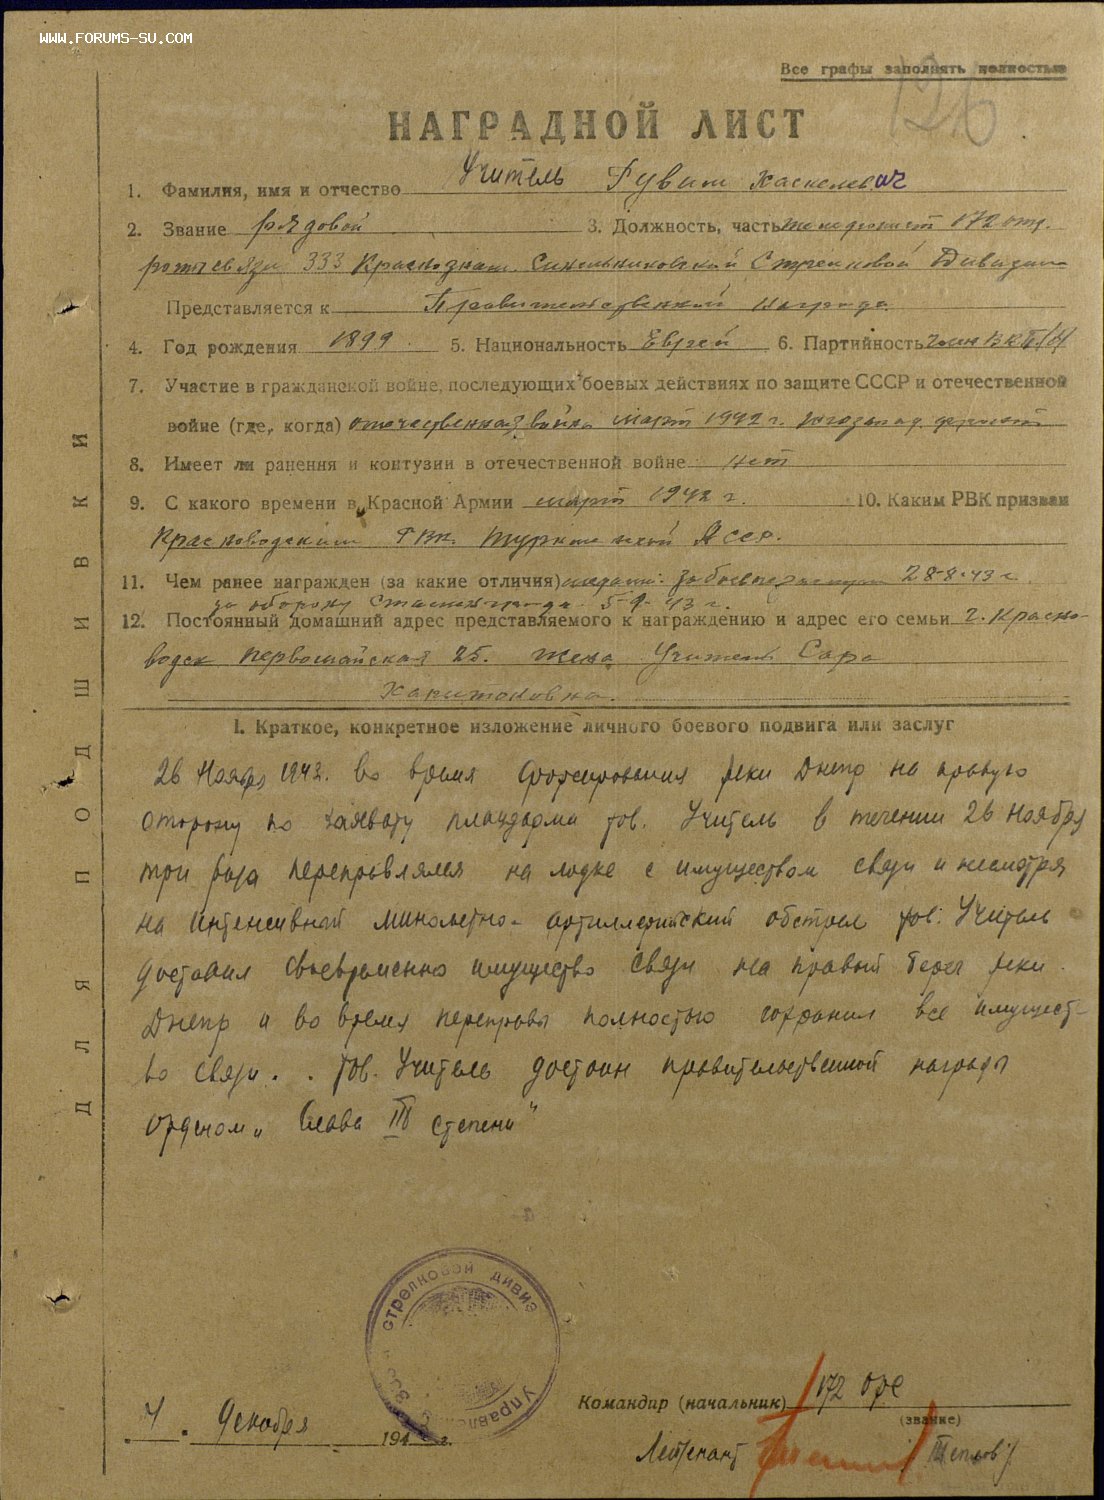 WWW.FORUMS-SU.COM
Все графы заполнять полностью
126
НАГРАДНОЙ ЛИСТ
1. Фамилия, имя и отчество Учитель Рувим Хаскелевич
2. Звание рядовой 3. Должность, часть телефонист 172 отд.
роты связи 333 Краснознам. Синельниковской Стрелковой Дивизии
Представляется к Правительственной награде
4. Год рождения 1899 5. Национальность Еврей 6. Партийность член ВКП/б/
7. Участие в гражданской войне, последующих боевых действиях по защите СССР и отечественной
войне (где, когда) отечественная война март 1942 г. югозапад. фронт
8. Имеет ли ранения и контузии в отечественной войне нет
9. С какого времени в Красной Армии март 1942 г. 10. Каким РВК призван
Красноводским ГВК. Туркменской ССР.
11. Чем ранее награжден (за какие отличия) медали: За боевые заслуги 28-8-43 г.
за оборону Сталинграда 5-9-43 г.
12. Постоянный домашний адрес представляемого к награждению и адрес его семьи г. Красно-
водск Первомайская 25. жена Учитель Сара
Харитоновна.
I. Краткое, конкретное изложение личного боевого подвига или заслуг
26 Ноября 1943. во время форсирования реки Днепр на правую
сторону по захвату плацдарма тов. Учитель в течении 26 Ноября
три раза переправлялся на лодке с имуществом связи и несмотря
на интенсивный минометно-артиллерийский обстрел тов. Учитель
доставил своевременно имущество связи на правый берег реки
Днепр и во время переправы полностью сохранил все имущест-
во связи. . Тов. Учитель достоин правительственной награды
орденом „Слава III степени"
ДЛЯ ПОДШИВКИ
стрелковой дивиз
Управлен
7. Декабря 194 г.
Командир (начальник) 172 орс
(звание)
Лейтенант